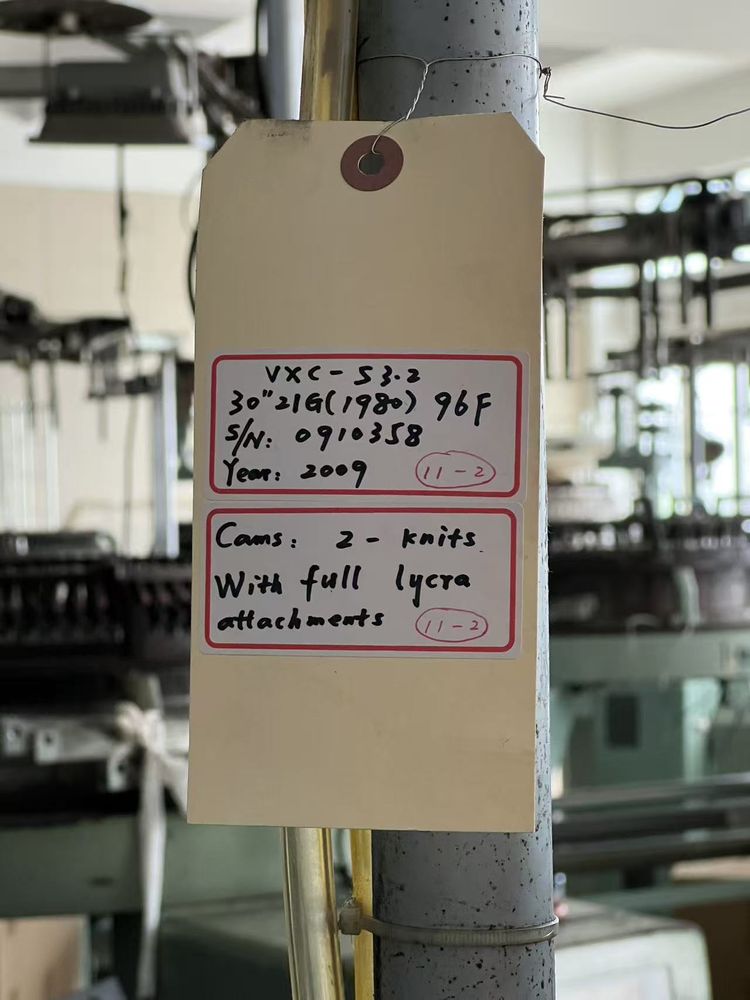 VXC-S3.2
30"21G(1980) 96F
S/N: 0910358
Year: 2009 11-2
Cams: 2- knits
With full lycra
attachments 11-2